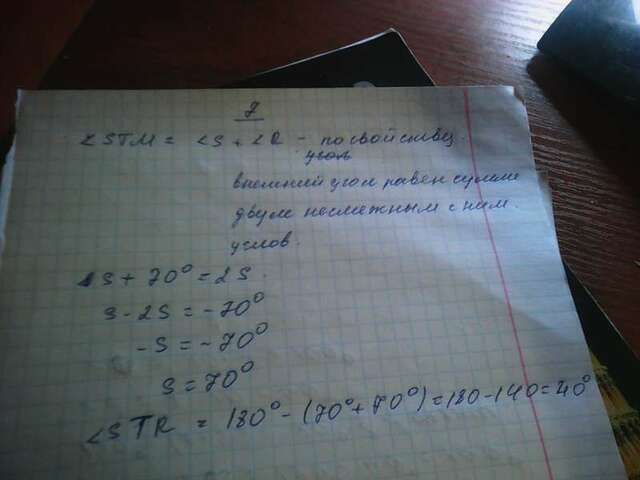 7
∠STM = ∠S + ∠R - по свойству.
внешний угол равен сумме
двум несмежным с ним.
углов.
S + 70° = 2S.
S - 2S = -70°
-S = -70°
S = 70°
∠STR = 180° - (70° + 70°) = 180 - 140 = 40°